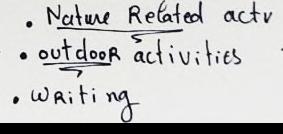 • Nature Related actv
• outdooR activities
• WRiting